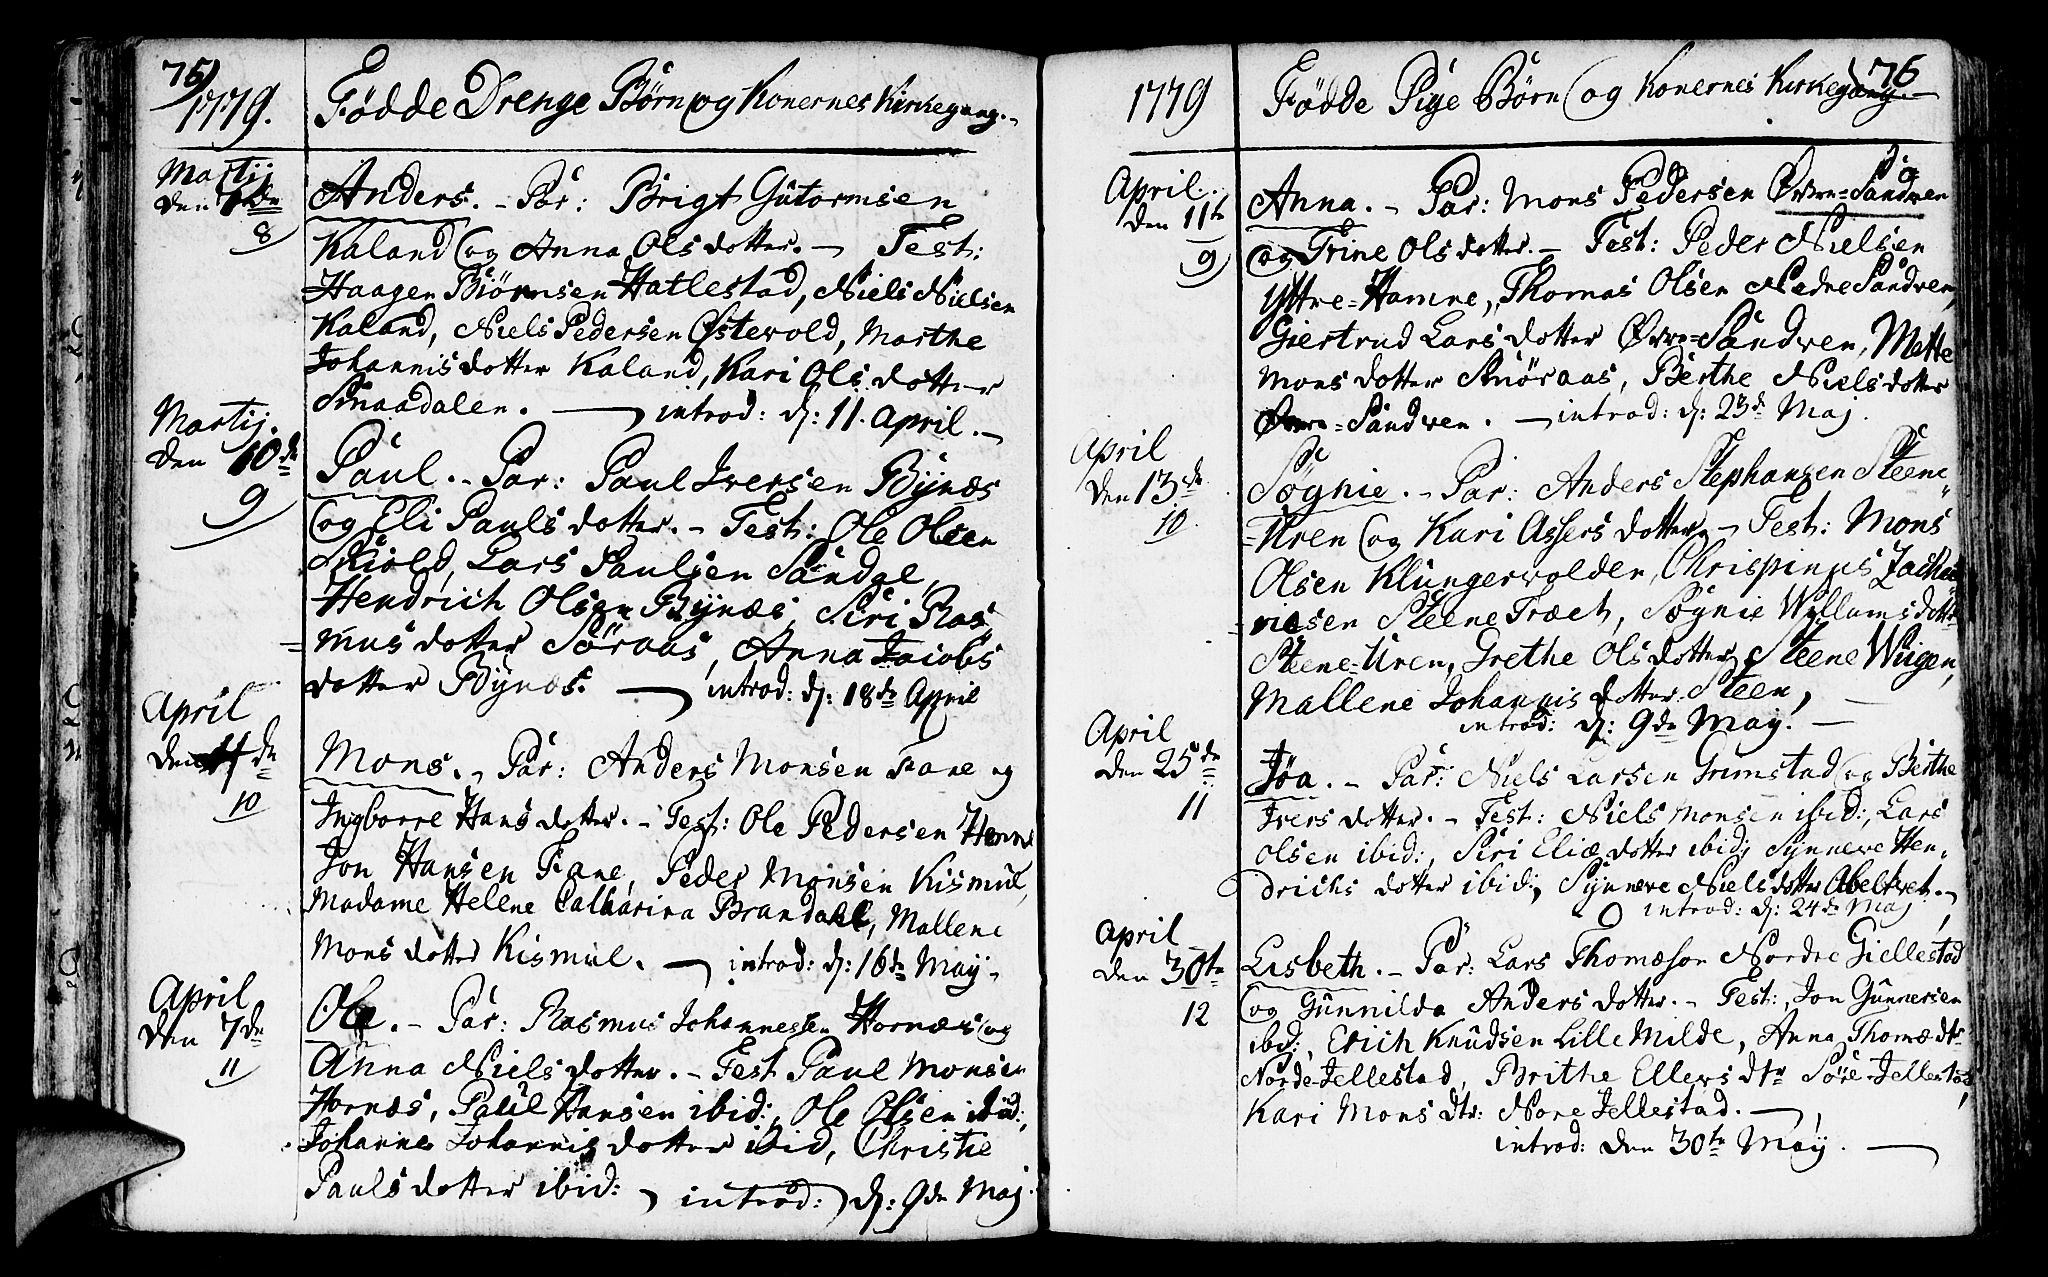 75
1779. Fødde Drenge Børn og Konernes Kirkegang.
Martij
den 7de
8
Anders. - Par: Brigt Gutormsen
Kaland (og Anna Olsdotter. - Test:
Haagen Biörnsen Hatlestad, Niels Nielsen
Kaland, Niels Pedersen Østevold, Marthe
Johannisdotter Kaland, Kari Olsdotter
Smaadalen. - introd: d: 11. April.
Martij.
den 10de
9
Paul. - Par: Paul Iversen Bÿnæs
(og Eli Paulsdotter. - Test: Ole Olsen
Skiold, Lars Paulsen Sandal,
Hendrich Olsen Bÿnæs, Siri Ras
= musdotter Søraas, Anna Jacobs
dotter Bynæs. - introd: d: 18de April
April
den de
10
Mons. - Par: Anders Monsen Fane og
Ingborre Hansdotter. - Test: Ole Pedersen
Jon Hansen Fane, Peder Monsen Kismul,
Madame Helene Catharina Brandahl, Mallene
Monsdotter Kismul. - introd: d: 16de Maÿ
April
den 7de
11
Ole. - Par: Rasmus Johannessen Hornæs (og
Anna Nielsdotter. - Test Paul Monsen
Hornæs, Paul Hansen ibid:, Ole Olsen ibid:,
Johanne Johannisdotter ibid, Christie
Paulsdotter ibid: introd: d: 9de Maj.
76
1779 Fødde Pige Børn (og Konernes Kirkegang.
April.
den 11te
9
Anna. - Par: Mons Pedersen Øvre=Sandven
(og Trine Olsdotter. - Test: Peder Nielsen
Yttre=Hamre, Thomas Olsen Nedre Sandven,
Giertrud Larsdotter Øvre=Sandven, Mette
Monsdotter Smøraas, Berthe Nielsdotter
Øvre=Sandven. - introd: d: 23de Maj.
April
den 13de
10.
Søgnie. - Par: Anders Stephansen Steene
=Uren (og Kari Assersdotter. - Test: Mons
Olsen Klungervolden, Chrispinus Zacha
riesen Steene Træet, Søgnie Wyllumsdotter
Steene=Uren, Grethe Olsdotter Steene Wiigen,
Mallene Johannisdotter Steen,
introd: d: 9de May. -
April
den 25de
11
Jøa. - Par: Niels Larsen Grimstad (og Birthe
Iversdotter. - Test: Niels Monsen ibid:, Lars
Olsen ibid:, Siri Eliædotter ibid: Synneve Hen
drichsdotter ibid:, Synneve Nielsdotter
introd: d: 24de Maj
April
den 30te
12
Lisbeth. - Par: Lars Thomæson Nordre Giellestad
(og Gunnilda Andersdotter. - Test:, Jon Gunnersen
ibid:, Erich Knudsen Lille Milde, Anna Thomædtr
Norde Jellestad, Brithe Ellersdtr Søre Jellestad,
Kari Monsdtr: Nore Jellestad. -
introd: den 30te Maÿ. -